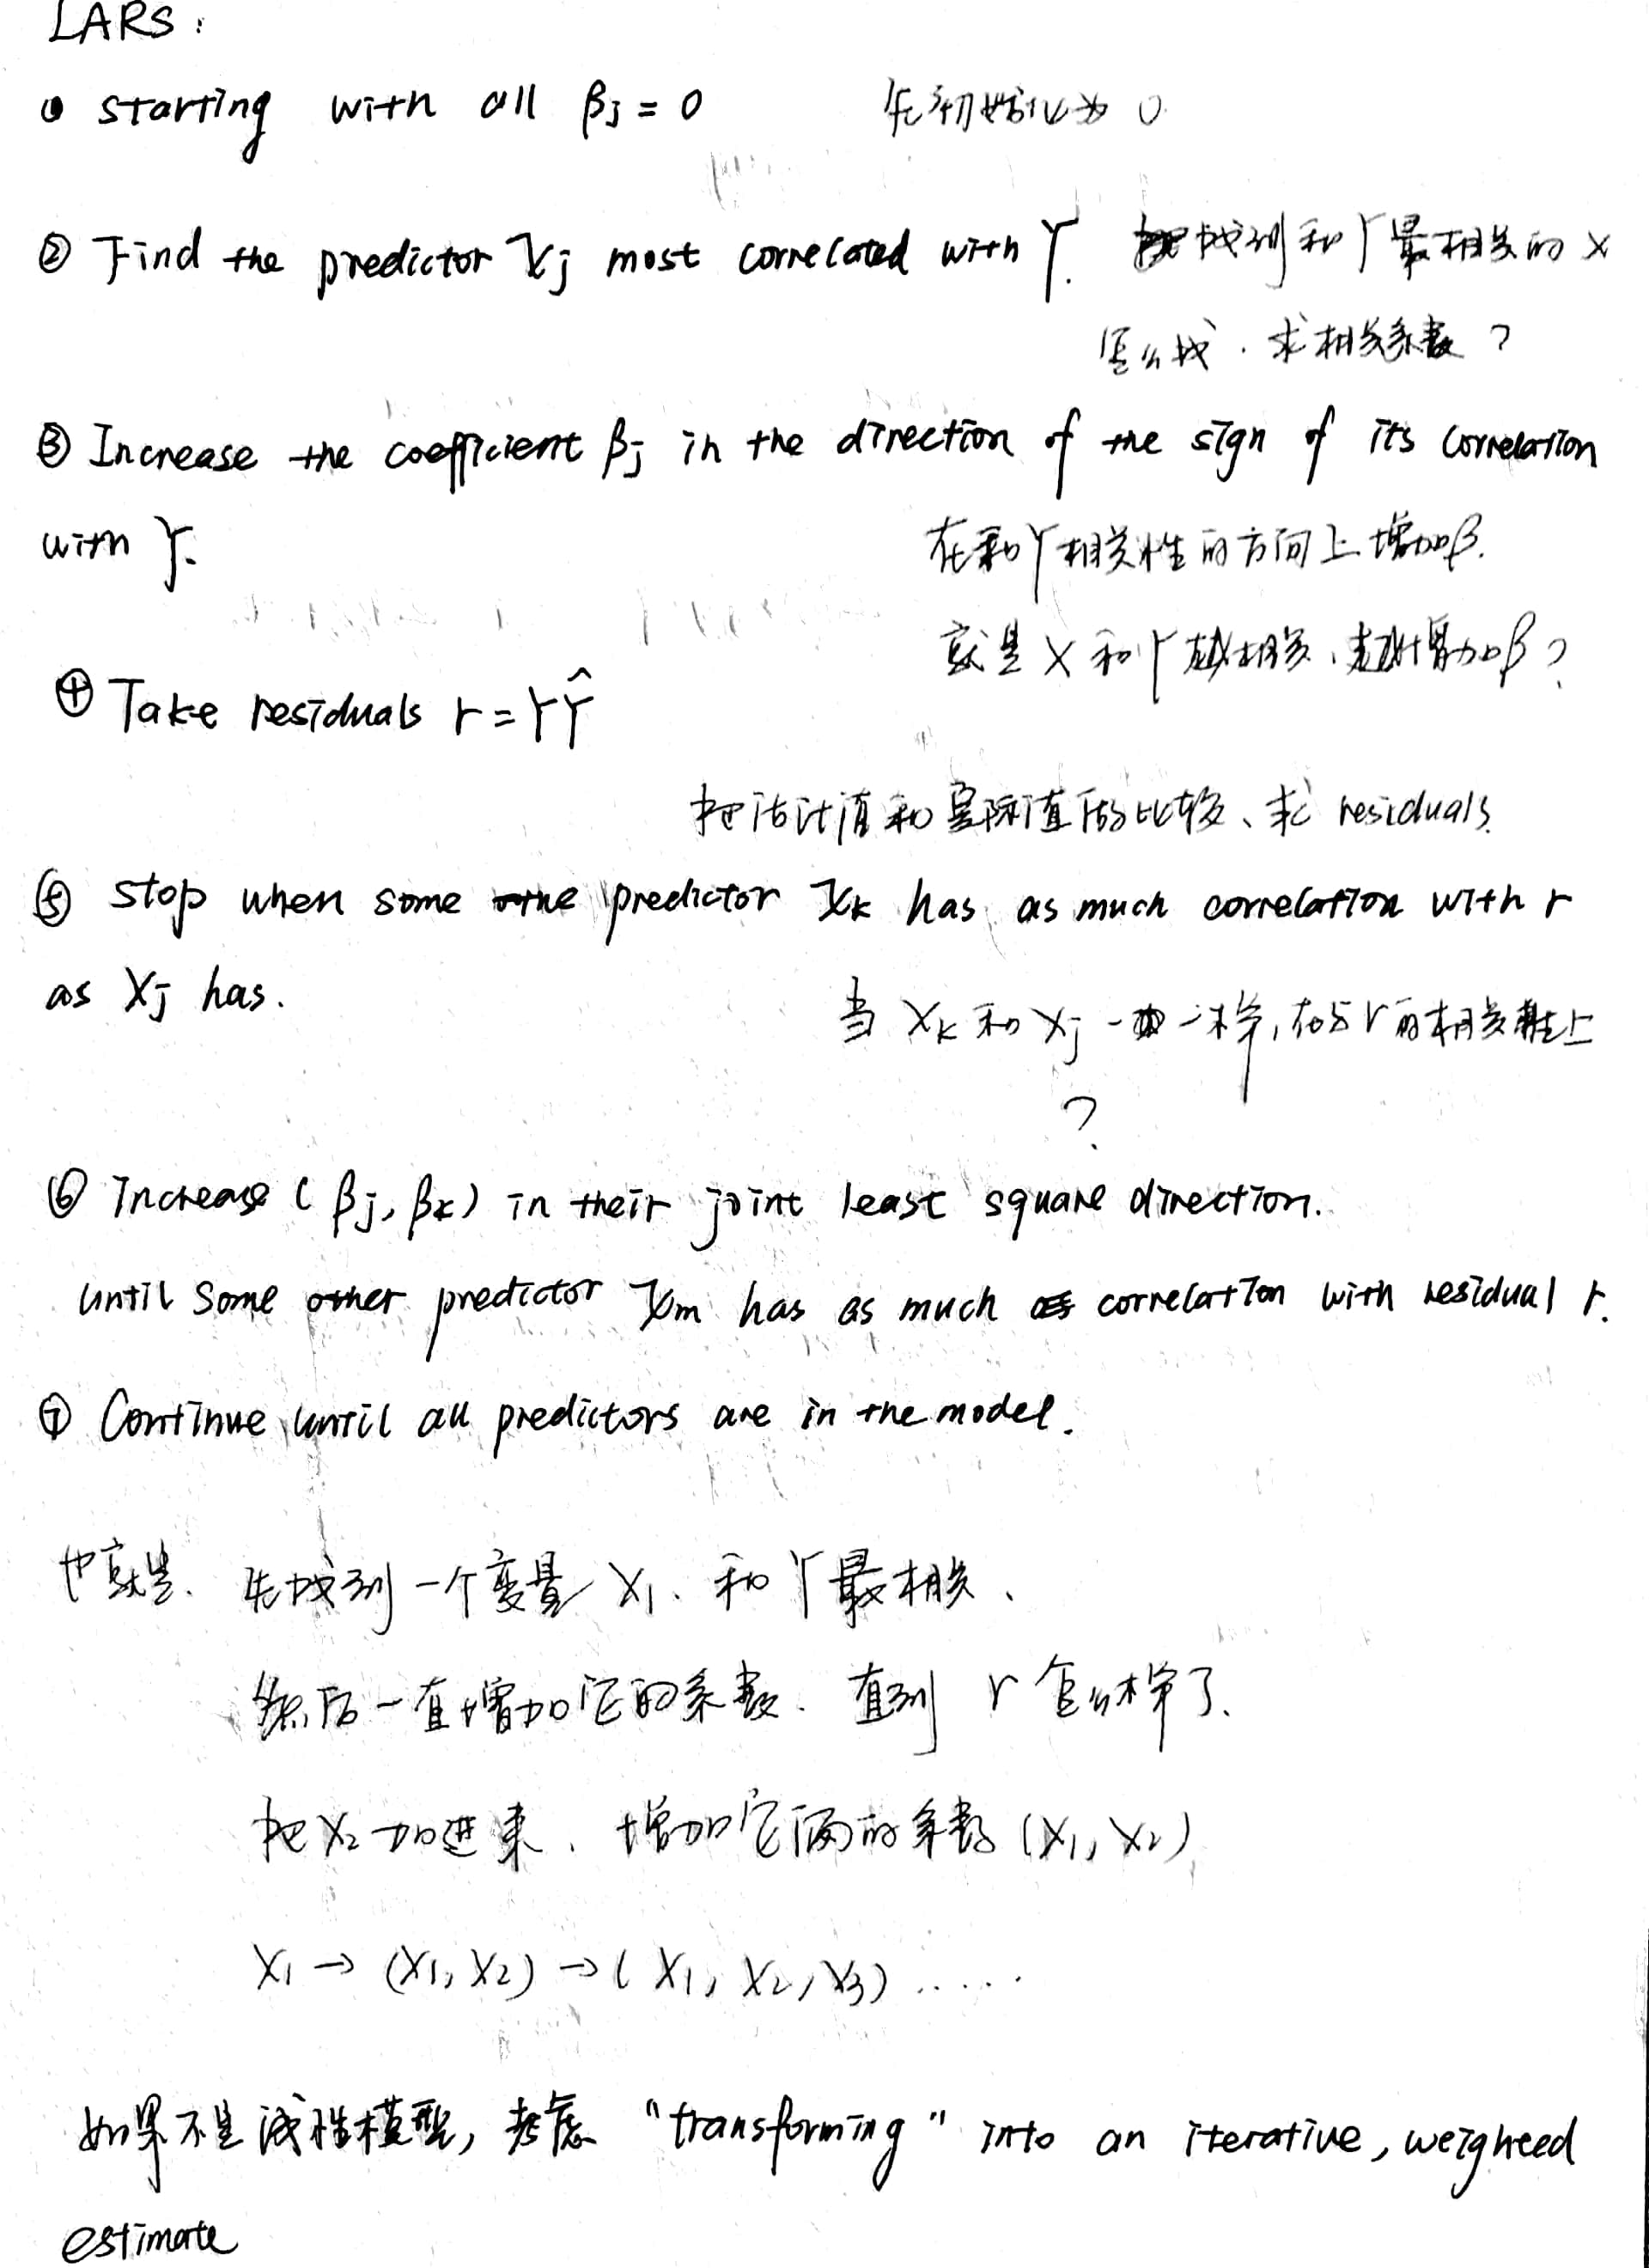 LARS:
① starting with all βj = 0 先初始化为 0
② Find the predictor Xj most correlated with Y. 找到和Y最相关的X
怎么找. 求相关系数?
③ Increase the coefficient βj in the direction of the sign of its correlation
with Y.
在和Y相关性的方向上增加β.
就是X和Y越相关、越增加β?
④ Take residuals r = YŶ
把估计值和实际值做比较、求 residuals.
⑤ stop when some predictor Xk has as much correlation with r
as Xj has.
当 Xk 和 Xj 一样, 在与r的相关性上
?
⑥ Increase (βj, βk) in their joint least square direction.
until some other predictor Xm has as much correlation with residual r.
⑦ Continue until all predictors are in the model.
也就是. 先找到一个变量 X1. 和Y最相关、
然后一直增加它的系数. 直到 r 怎么样了.
把X2加进来. 增加它俩的系数 (X1, X2)
X1 → (X1, X2) → (X1, X2, X3) .....
如果不是线性模型, 考虑 "transforming" into an iterative, weigheed
estimate